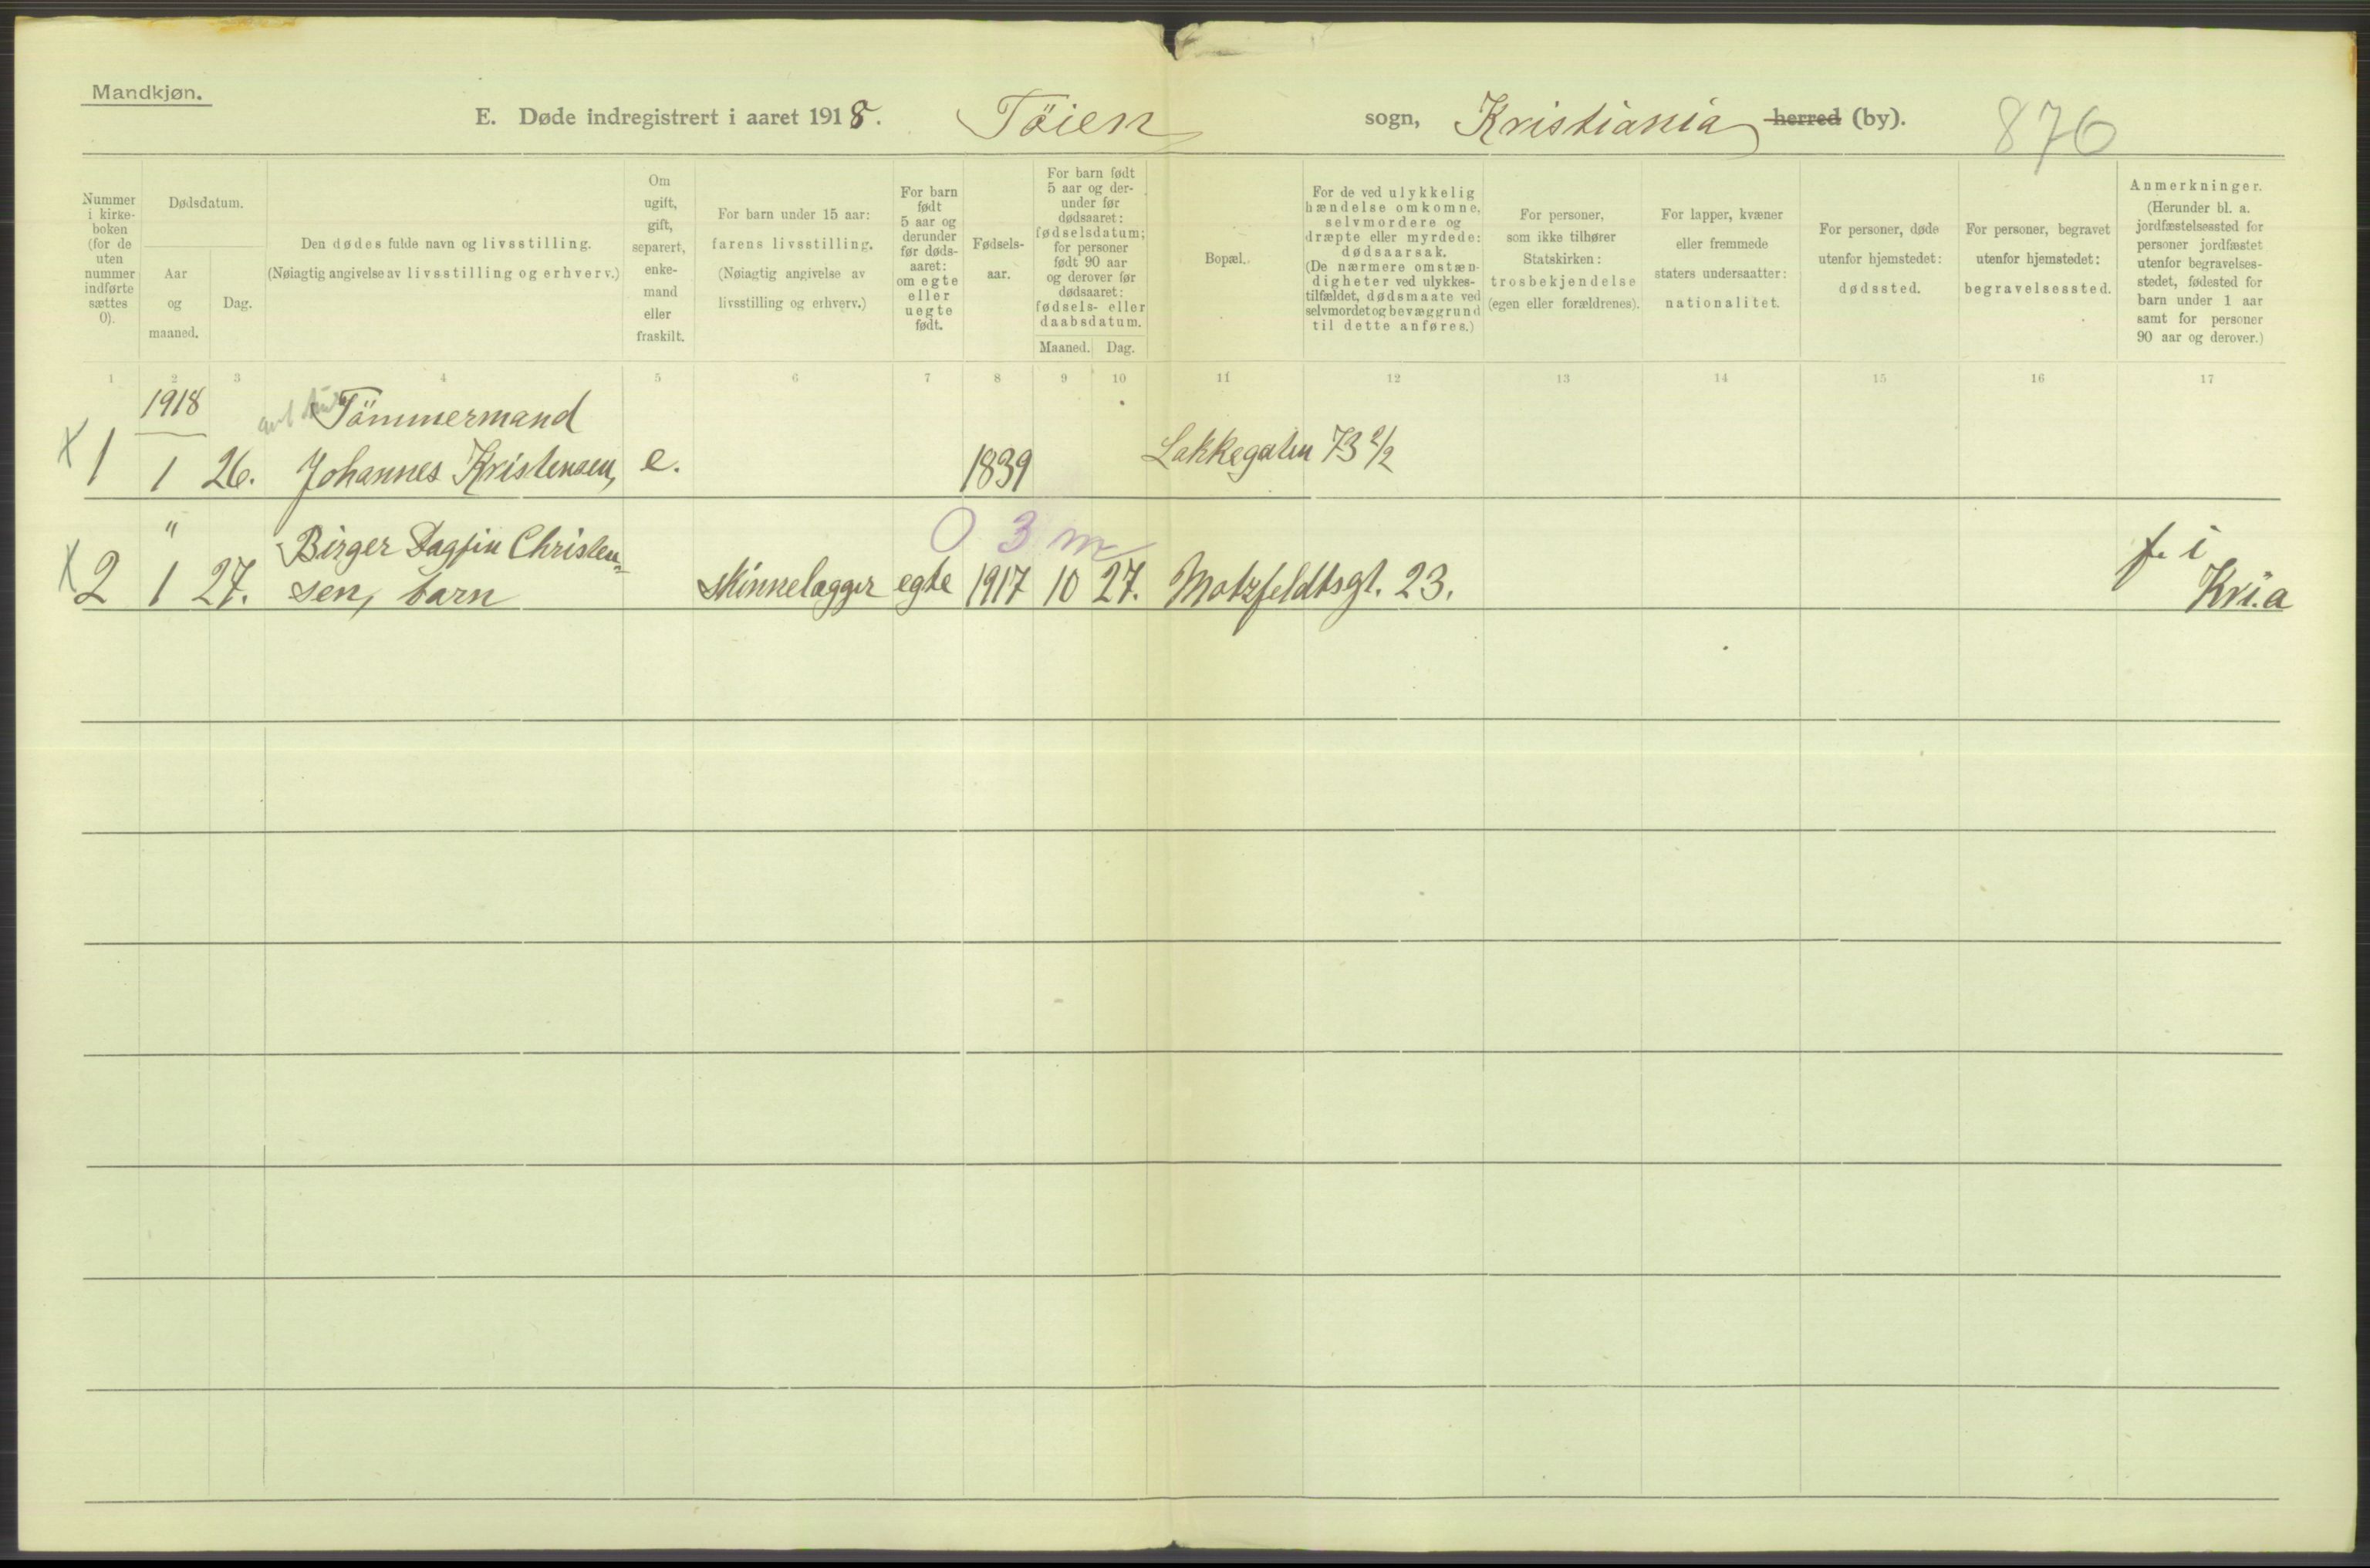 Mandkjøn.
E. Døde indregistrert i aaret 1918. Töien sogn, Kristiania herred (by). 876
Nummer i kirke-boken (for de uten nummer indførte sættes 0).
Dødsdatum.
Aar og maaned.
Dag.
Den dødes fulde navn og livsstilling.
(Nøiagtig angivelse av livsstilling og erhverv.)
Om ugift, gift, separert, enke-mand eller fraskilt.
For barn under 15 aar:
farens livsstilling.
(Nøiagtig angivelse av
livsstilling og erhverv.)
For barn født 5 aar og derunder før døds-aaret: om egte eller uegte født.
Fødsels-aar.
For barn født 5 aar og der-under før dødsaaret: fødselsdatum; for personer født 90 aar og derover før dødsaaret: fødsels- eller daabsdatum.
Maaned. Dag.
Bopæl.
For de ved ulykkelig hændelse omkomne, selvmordere og dræpte eller myrdede: dødsaarsak. (De nærmere omstæn-digheter ved ulykkes-tilfældet, dødsmaate ved selvmordet og bevæggrund til dette anføres.)
For personer, som ikke tilhører Statskirken: trosbekjendelse (egen eller forældrenes).
For lapper, kvæner eller fremmede staters undersaatter: nationalitet.
For personer, døde utenfor hjemstedet: dødssted.
For personer, begravet utenfor hjemstedet: begravelsessted.
Anmerkninger. (Herunder bl. a. jordfæstelsessted for personer jordfæstet utenfor begravelses-stedet, fødested for barn under 1 aar samt for personer 90 aar og derover.)
1 2 3 4 5 6 7 8 9 10 11 12 13 14 15 16 17
1918 Tömmermand
x 1 1 26. Johannes Kristensen, e. 1839 Lakkegaten 73 2/2
" Birger Dagfin Christen- 0 3 m f. i
x 2 1 27. sen, barn skinnelægger egte 1917 10 27. Motzfeldtsgt. 23. Kri.a